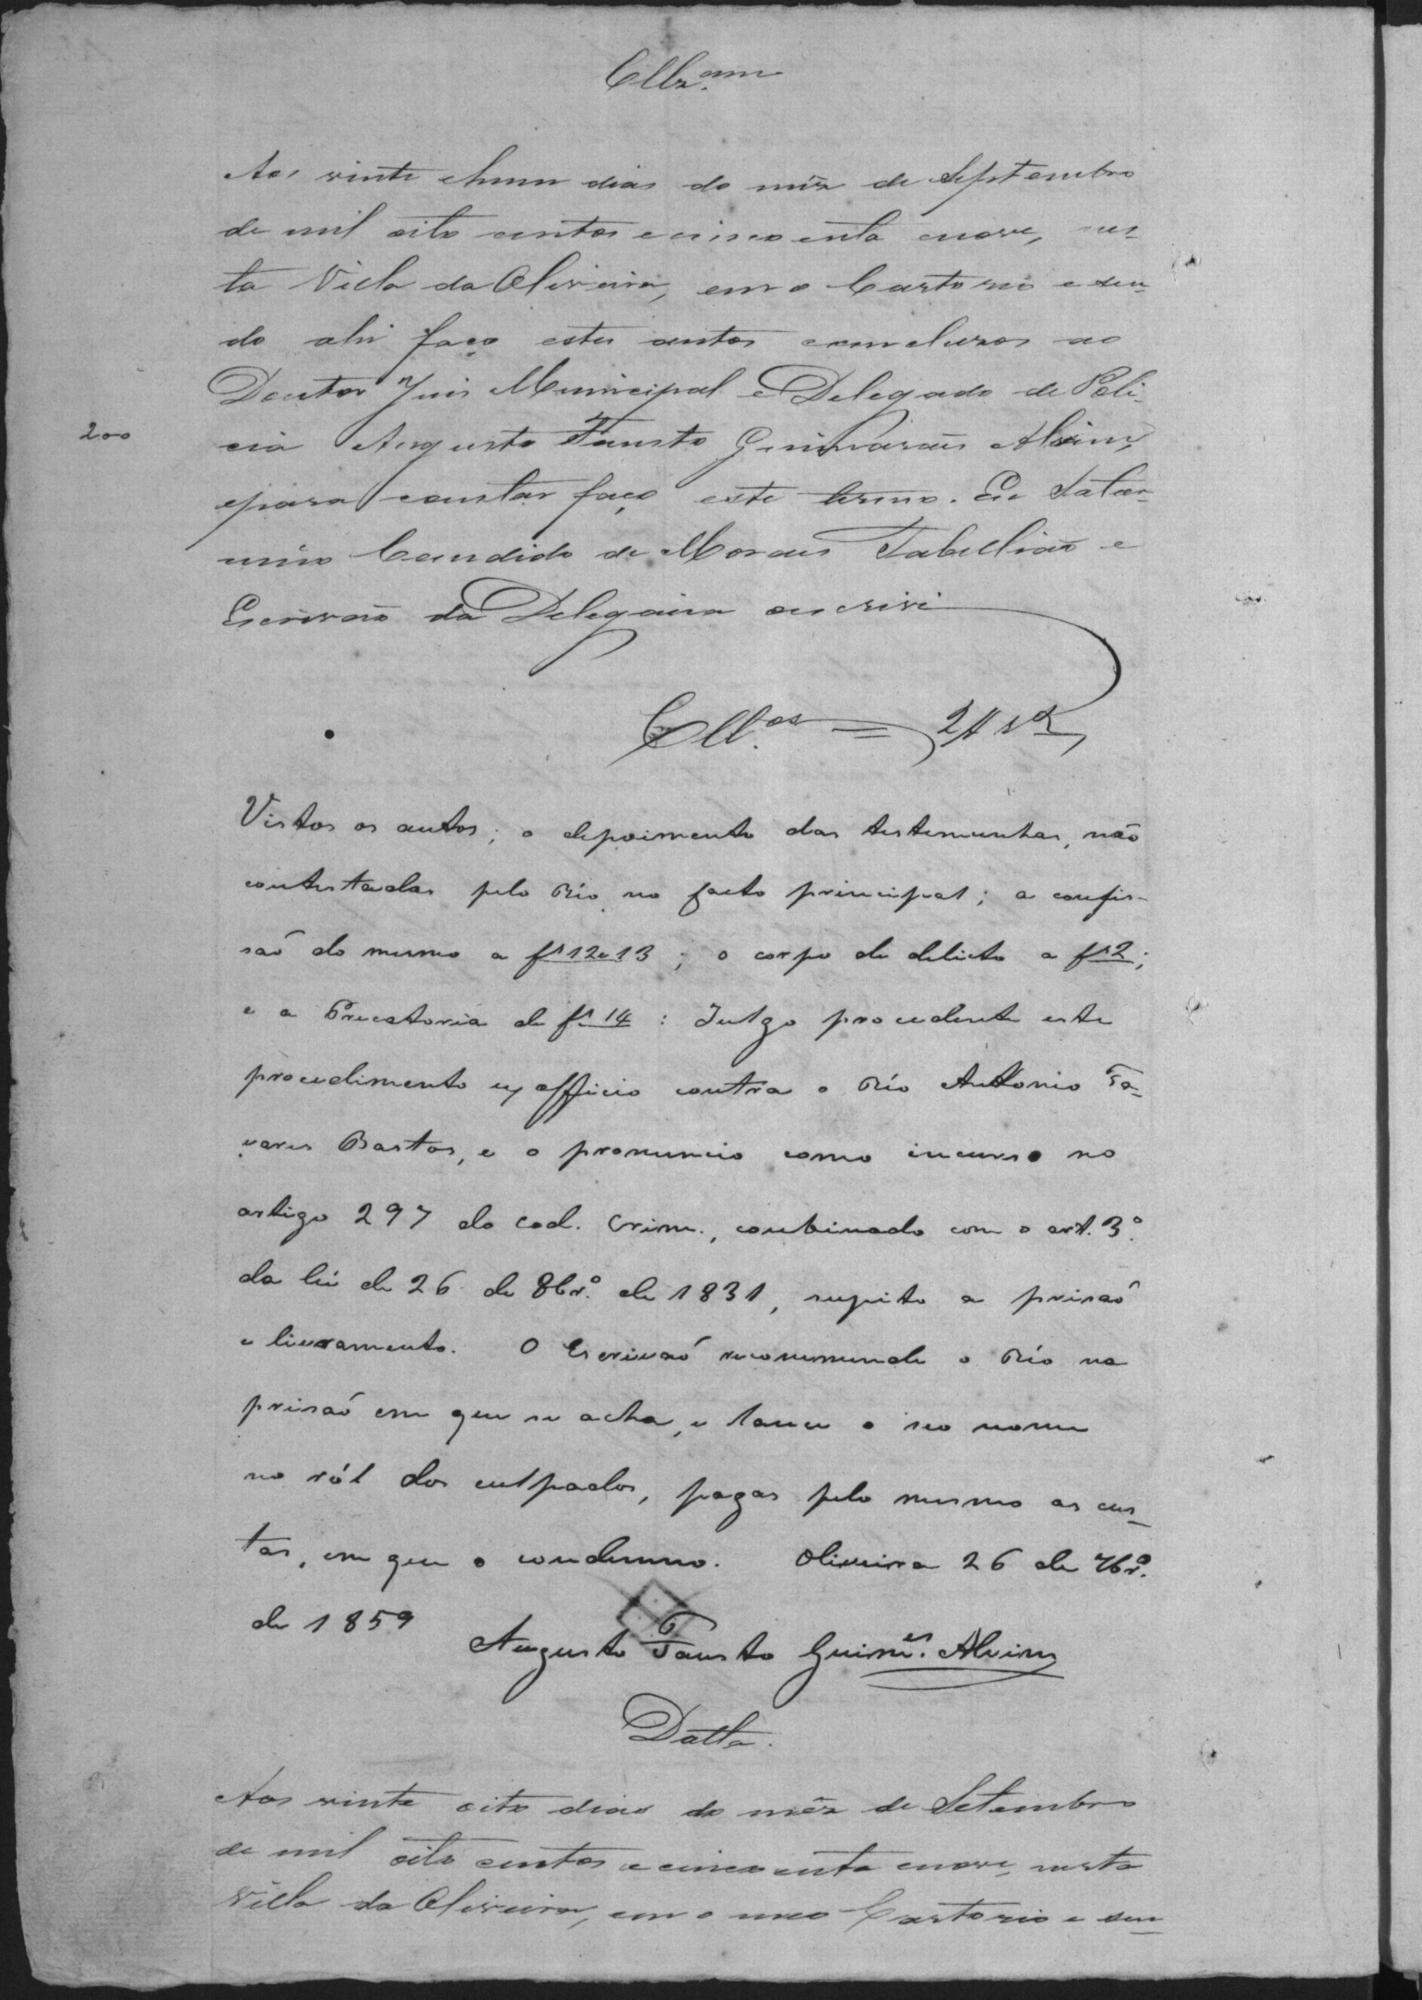 Cllz.am
Aos vinte ehum dias do mêz de Septembro
de mil oito centos e cincoenta enove, nes-
ta Villa da Oliveira, em o Cartorio e sen-
do ahi faço estes autos concluzos ao
Doutor Juis Municipal e Delegado de Poli-
200
cia Augusto Fausto Guimarais Alvim,
epara constar faço este termo. Eu Satur-
nino Candido de Moraes Tabellião e
Escrivão da Delegacia oescrivi
Cll.os =
Vistos os autos; o depoimento das testemunhas, não
contestadas pelo Réo no facto principal; a confis-
saõ do mesmo a fs 12 e 13; o corpo de delicto a fs 2;
e a Precatoria de fs 14: Julgo procedente este
procedimento ex officio contra o Réo Antonio Ta-
vares Bastos, e o pronuncio como incurso no
artigo 297 do Cod. Crim., combinado com o art. 3.º
da lei de 26 de 8br.º de 1831, sugeito a prisaõ
e livramento. O Escrivaõ recommende o Réo na
prisaõ em que se acha, e lance o seo nome
no ról dos culpados, pagas pelo mesmo as cus-
tas, em que o condemno. Oliveira 26 de 7br.º
de 1859
Augusto Fausto Guim.es Alvim
Datta.
Aos vinte oito dias do mêz de Setembro
de mil oito centos e cincoenta enove, nesta
Villa da Oliveira, em o meo Cartorio e sen-